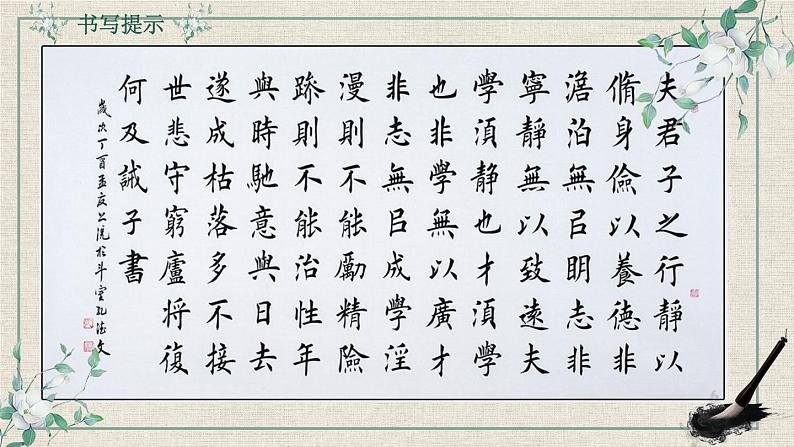 书写提示
夫君子之行靜以
脩身儉以養德非
澹泊無㠯眀志非
寧靜無以致遠夫
學湏靜也才湏學
也非學無以廣才
非志無㠯成學淫
漫則不能勵精險
躁則不能治性年
與時馳意與日去
遂成枯落多不接
世悲守窮廬將復
何及誡子書
歲次丁酉孟夏上浣於斗室孔德文